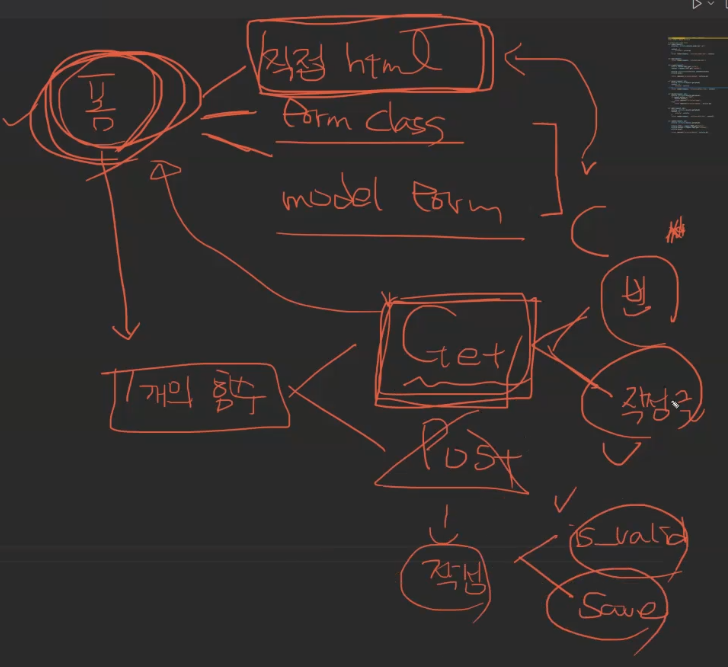 폼
직접 html
form class
model form
1개의 함수
Get
빈
작성
Post
작성
is_valid
Save